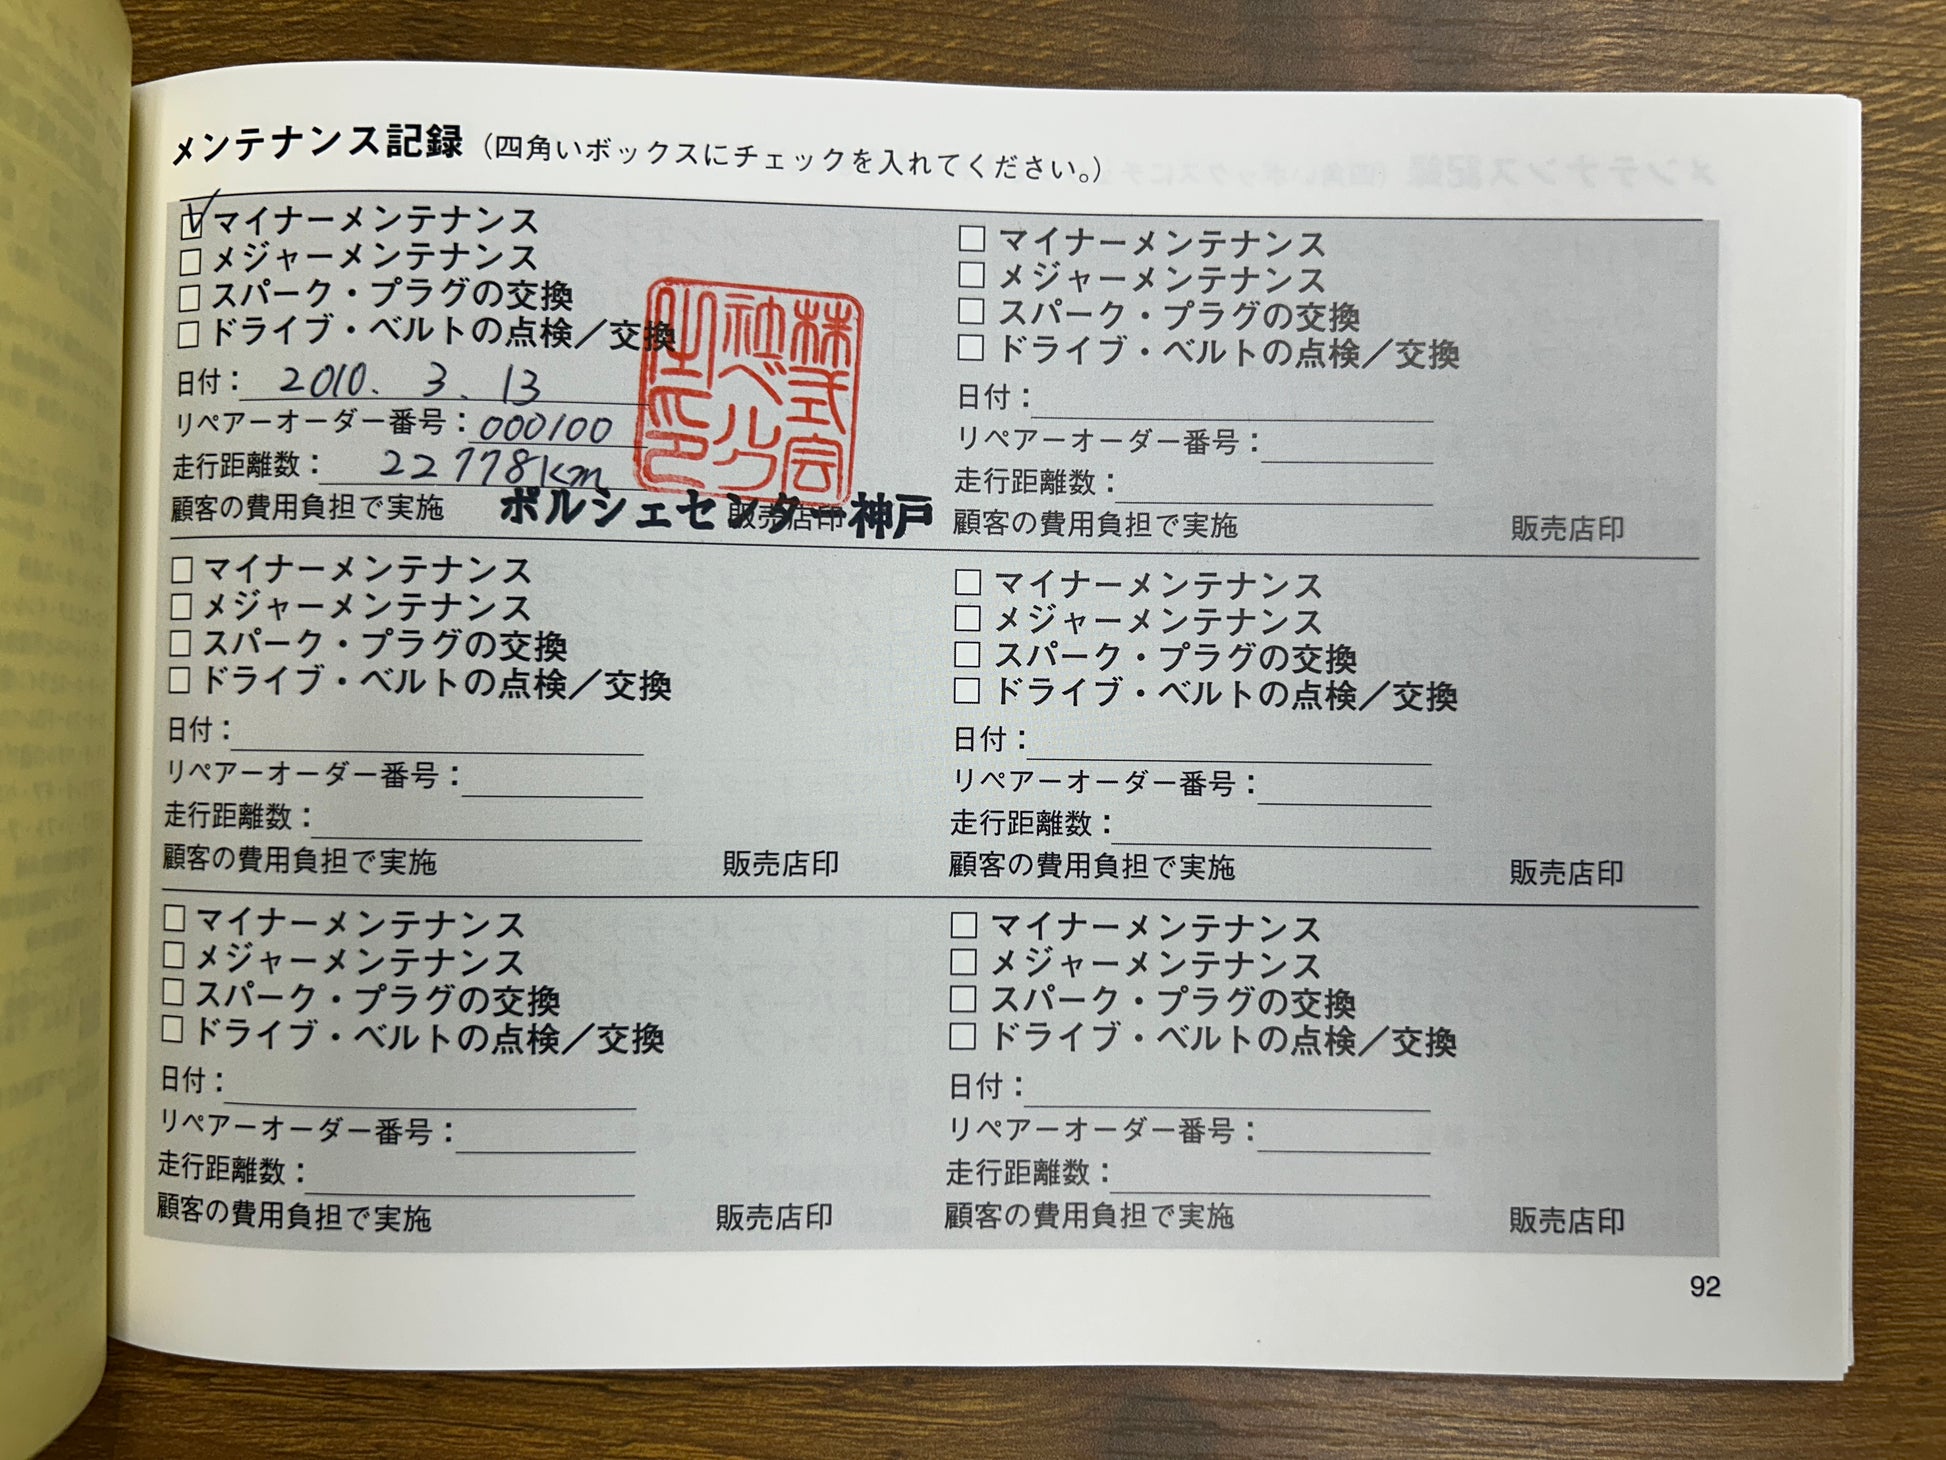 メンテナンス記録（四角いボックスにチェックを入れてください。）
マイナーメンテナンス
メジャーメンテナンス
スパーク・プラグの交換
ドライブ・ベルトの点検／交換
日付： 2010. 3. 13
リペアーオーダー番号：000100
走行距離数： 22778km
顧客の費用負担で実施 販売店印
株式会
社ペリグ
之印
ポルシェセンター神戸
マイナーメンテナンス
メジャーメンテナンス
スパーク・プラグの交換
ドライブ・ベルトの点検／交換
日付：
リペアーオーダー番号：
走行距離数：
顧客の費用負担で実施 販売店印
マイナーメンテナンス
メジャーメンテナンス
スパーク・プラグの交換
ドライブ・ベルトの点検／交換
日付：
リペアーオーダー番号：
走行距離数：
顧客の費用負担で実施 販売店印
マイナーメンテナンス
メジャーメンテナンス
スパーク・プラグの交換
ドライブ・ベルトの点検／交換
日付：
リペアーオーダー番号：
走行距離数：
顧客の費用負担で実施 販売店印
マイナーメンテナンス
メジャーメンテナンス
スパーク・プラグの交換
ドライブ・ベルトの点検／交換
日付：
リペアーオーダー番号：
走行距離数：
顧客の費用負担で実施 販売店印
マイナーメンテナンス
メジャーメンテナンス
スパーク・プラグの交換
ドライブ・ベルトの点検／交換
日付：
リペアーオーダー番号：
走行距離数：
顧客の費用負担で実施 販売店印
92